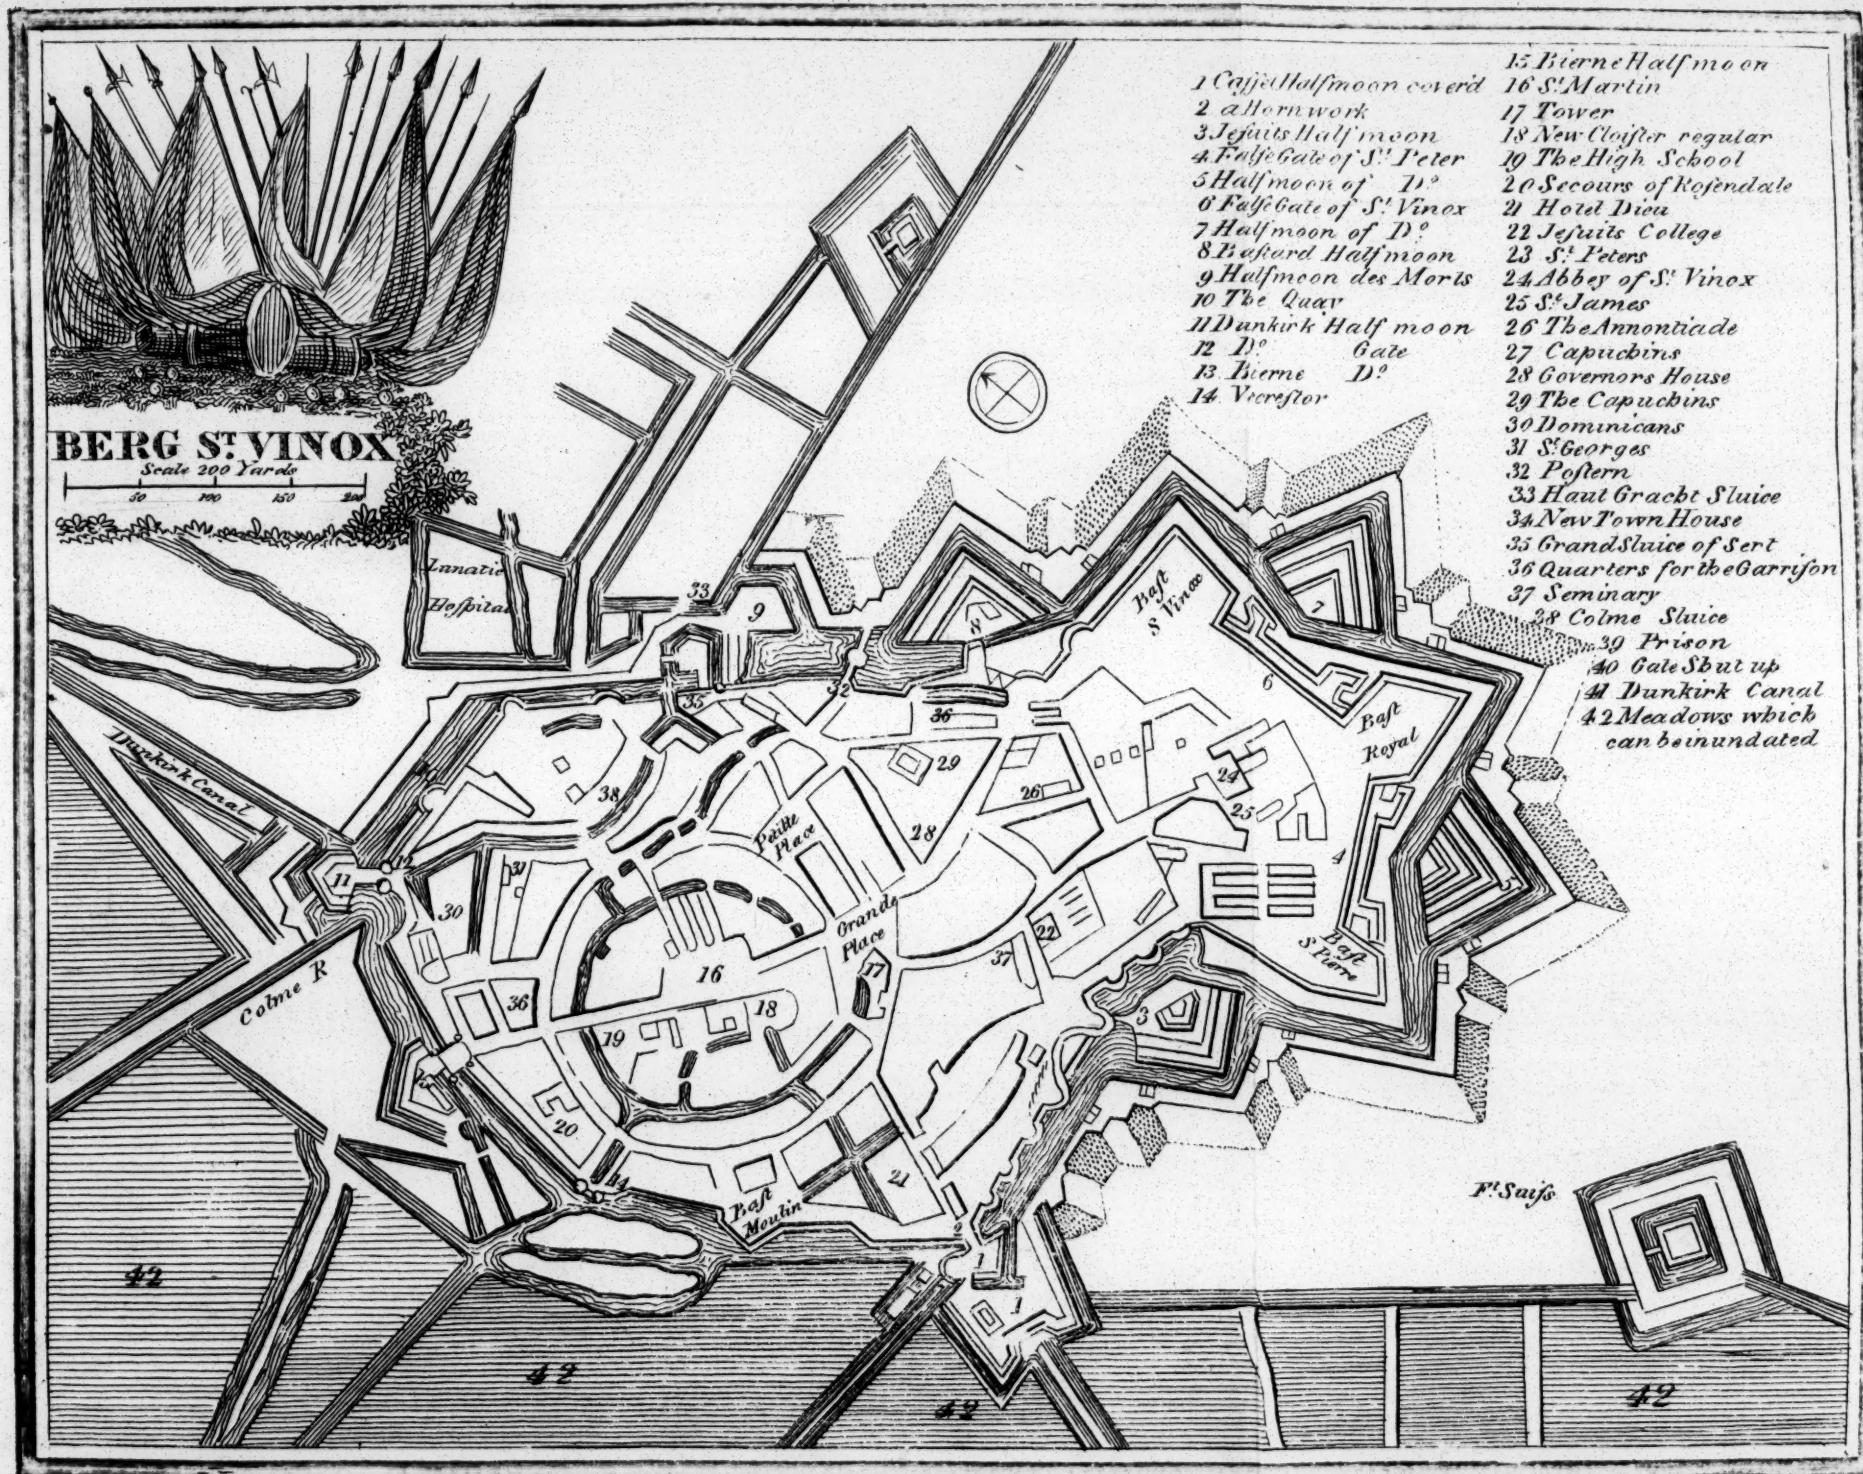 BERG S.T VINOX
Scale 200 Yards
50 100 150 200
1 Caſſel Halfmoon cover'd
2 a Hornwork
3 Jeſuits Halfmoon
4 Falſe Gate of S.t Peter
5 Halfmoon of D.o
6 Falſe Gate of S.t Vinox
7 Halfmoon of D.o
8 Baſtard Halfmoon
9 Halfmoon des Morts
10 The Quay
11 Dunkirk Half moon
12 D.o Gate
13 Bierne D.o
14
15 Bierne Half moon
16 S.t Martin
17 Tower
18 New Cloiſter regular
19 The High School
20 Secours of Roſendale
21 Hotel Dieu
22 Jeſuits College
23 S.t Peters
24 Abbey of S.t Vinox
25 S.t James
26 The Annontiade
27 Capuchins
28 Governors House
29 The Capuchins
30 Dominicans
31 S.t Georges
32 Poſtern
33 Haut Gracht Sluice
34 New Town House
35 Grand Sluice of Sert
36 Quarters for the Garriſon
37 Seminary
38 Colme Sluice
39 Prison
40 Gate Shut up
41 Dunkirk Canal
42 Meadows which
can be inundated
Lunatic
Hoſpital
33
9
8
7
Baſt
S Vinox
6
35
32
36
Baſt
Royal
Dunkirk Canal
38
29
26
24
25
28
Petite
Place
4
5
12
11
31
30
Grande
Place
22
37
Baſt
S Pierre
16
17
Colme R
36
18
19
3
20
14
21
Baſt
Moulin
2
1
1
F.t Suiſs
42
42
42
42